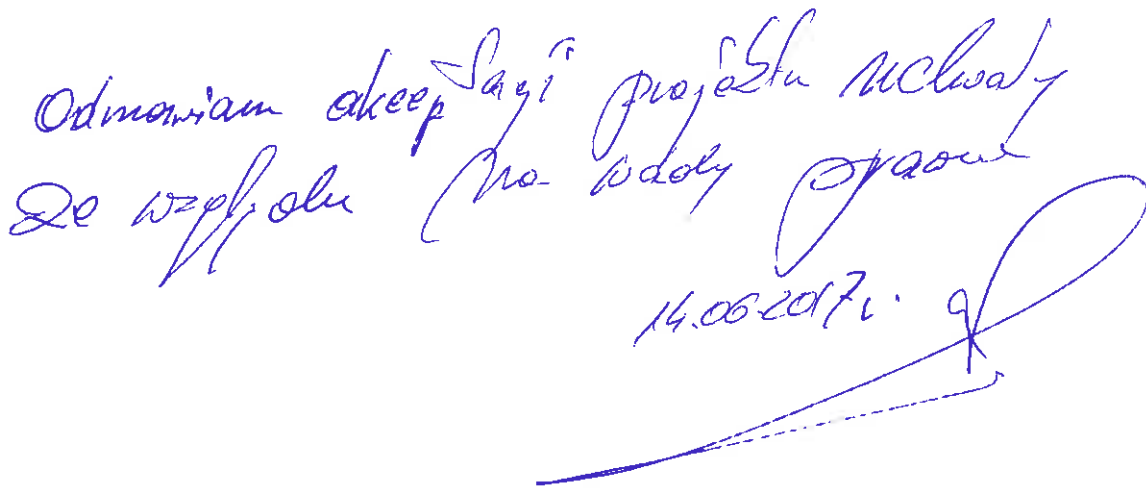 Odmawiam akceptacji projektu uchwały
ze względu na wady prawne
14.06.2017 r.